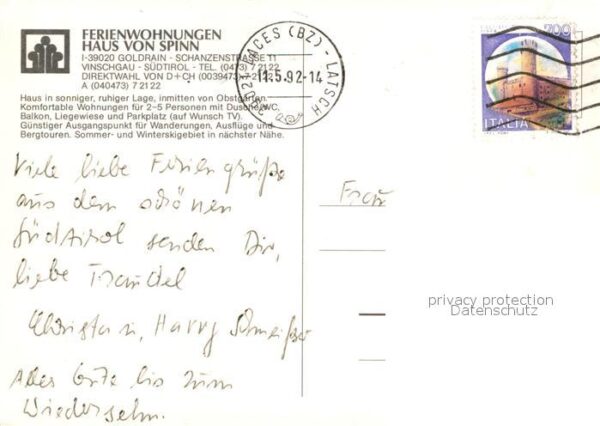 FERIENWOHNUNGEN
HAUS VON SPINN
I-39020 GOLDRAIN - SCHANZENSTRASSE 11
VINSCHGAU - SÜDTIROL - TEL. (0473) 72122
DIREKTWAHL VON D+CH (0039473) 72122
A (040473) 72122
Haus in sonniger, ruhiger Lage, inmitten von Obstgärten.
Komfortable Wohnungen für 2-5 Personen mit Dusche/WC,
Balkon, Liegewiese und Parkplatz (auf Wunsch TV).
Günstiger Ausgangspunkt für Wanderungen, Ausflüge und
Bergtouren. Sommer- und Winterskigebiet in nächster Nähe.
LACES (BZ) - LATSCH
11.5.92-14
700
ITALIA
Viele liebe Feriengrüße
aus dem schönen
Südtirol senden Dir,
liebe Traudel
Christa u. Harry
Alles Gute bis zum
Wiedersehn.
Frau
privacy protection
Datenschutz